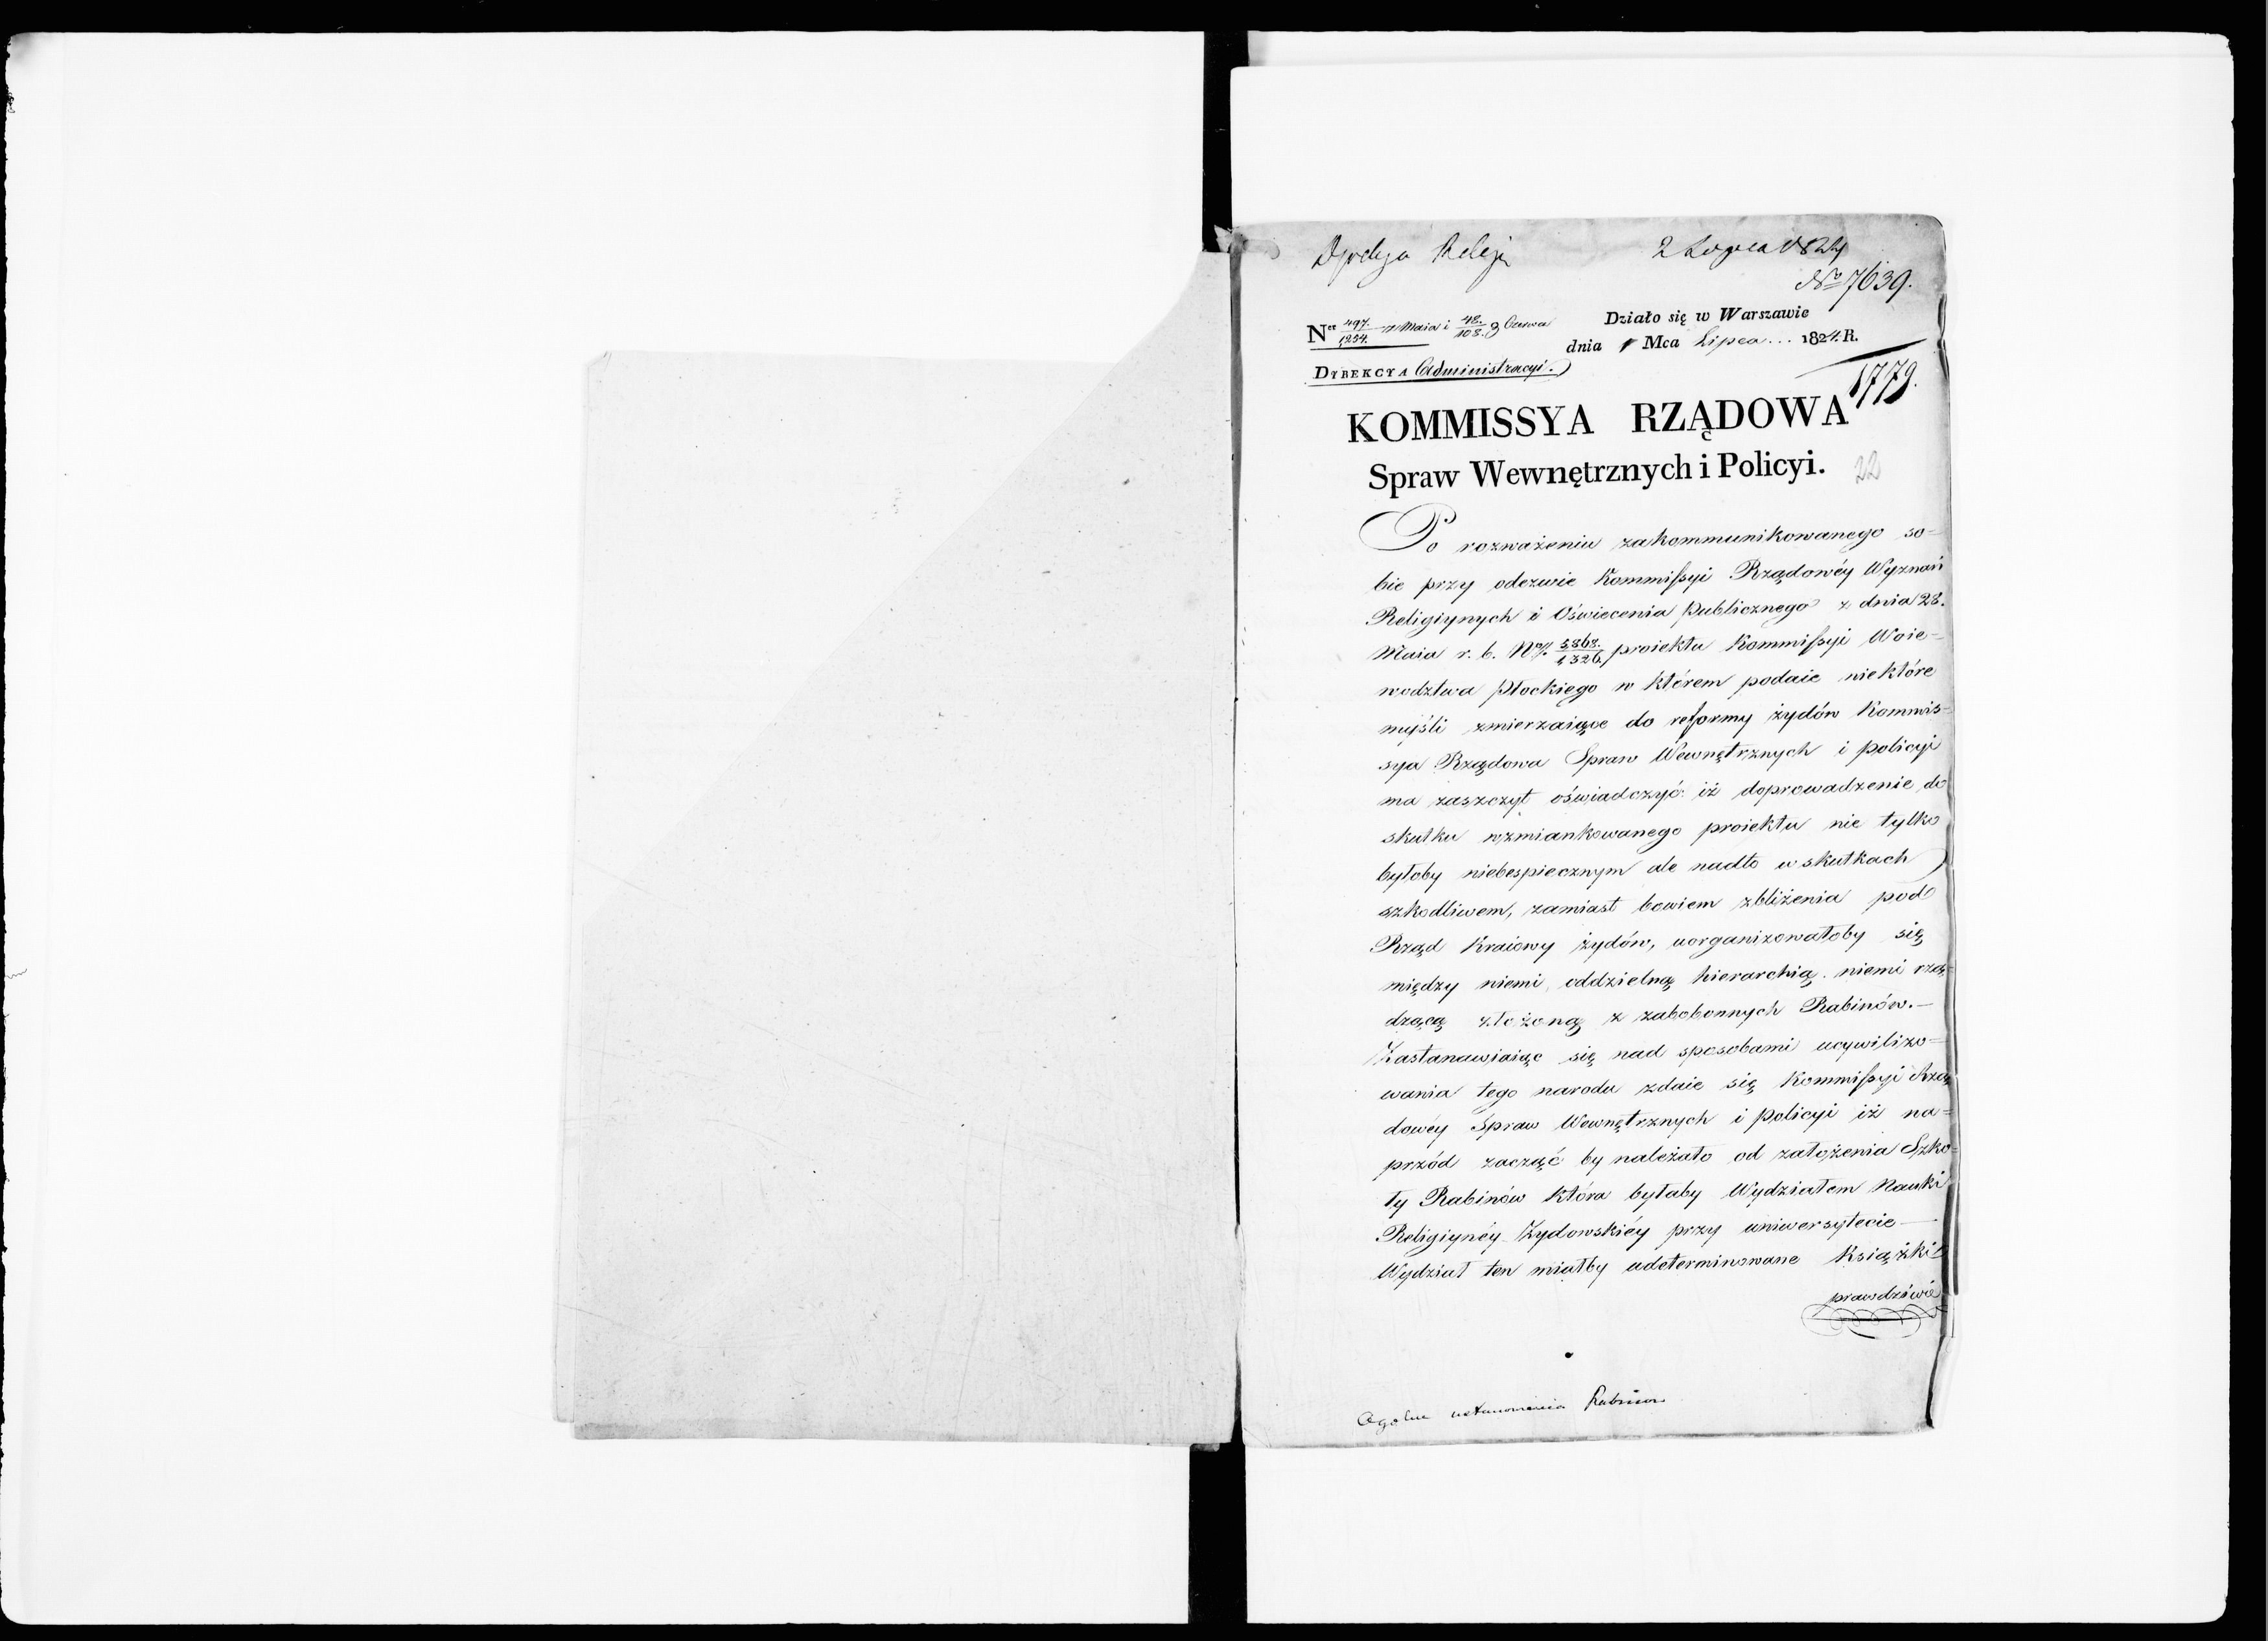 Dyrekcya Religij
2 Lipca 1824
No 7639.
Ner 497/1234 z Maia i 48./108. z Czerwca
Działo się w Warszawie
dnia 1 Mca Lipca ... 1824. R.
DYREKCYA Administracyi.
1779.
KOMMISSYA RZĄDOWA
Spraw Wewnętrznych i Policyi.
22
Po rozważeniu zakommunikowanego so-
bie przy odezwie Kommissyi Rządowéy Wyznań
Religiynych i Oświecenia Publicznego z dnia 28.
Maia r. b. No 5868./1326 proiektu Kommissyi Woie-
wodztwa Płockiego w którem podaie niektóre
myśli zmierzaiące do reformy żydów Kommis-
sya Rządowa Spraw Wewnętrznych i policyi
ma zaszczyt oświadczyć iż doprowadzenie do
skutku wzmiankowanego proiektu nie tylko
byłoby niebespiecznym ale nadto w skutkach
szkodliwem, zamiast bowiem zbliżenia pod
Rząd Kraiowy żydów, uorganizowałoby się
między niemi oddzielną hierarchią niemi rzą-
dzącą złożoną z zabobonnych Rabinów.—
Zastanawiaiąc się nad sposobami ucywilizo-
wania tego narodu zdaie się Kommissyi Rzą
dowéy Spraw Wewnętrznych i policyi iż na=
przód zacząć by należało od założenia Szko=
ły Rabinów która byłaby Wydziałem Nauki
Religiynéy Żydowskiéy przy uniwersytecie —
Wydział ten miałby udeterminowane Książki
prawdziwie
Ogólne ustanowienia Rabinów